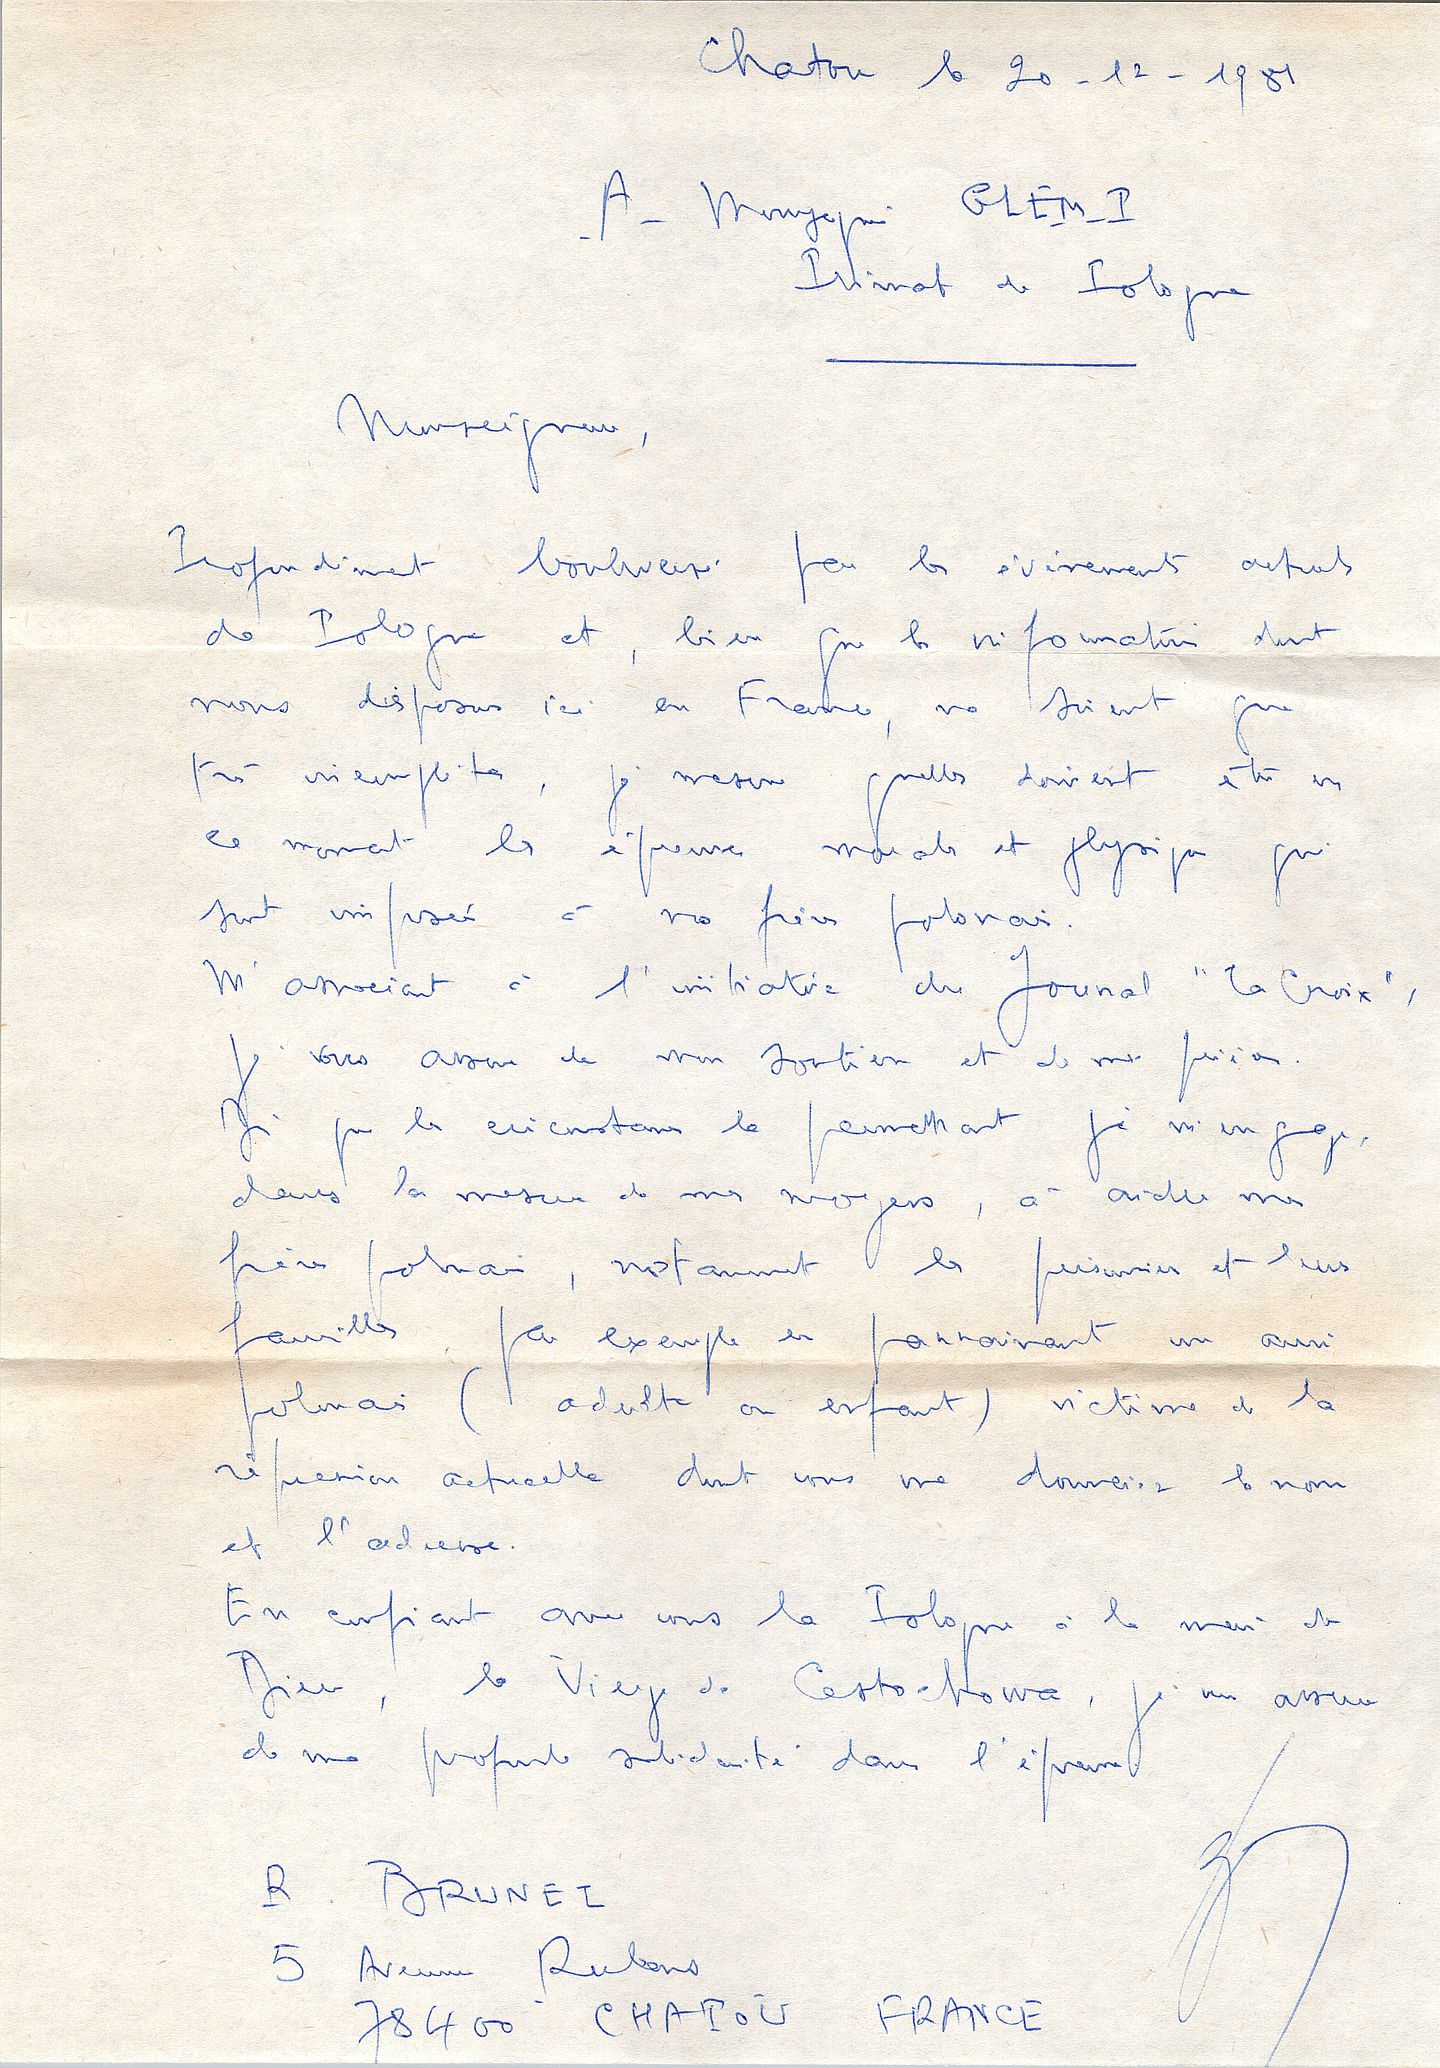 Chatou le 20-12-1981
A - Monseigneur GLEMP
Primat de Pologne
Monseigneur,
Profondément bouleversé par les événements actuels
de Pologne et, bien que les informations dont
nous disposons ici en France, ne soient que
très incomplètes, je mesure quelles doivent être en
ce moment les épreuves morales et physiques qui
sont imposées à nos frères polonais.
M'associant à l'initiative du Journal "La Croix",
je vous assure de mon soutien et de mes prières.
Dès que les circonstances le permettront je m'engage,
dans la mesure de mes moyens, à aider mes
frères polonais, notamment les prisonniers et leurs
familles, par exemple en parrainant un ami
polonais (adulte ou enfant) victime de la
répression actuelle dont vous me donneriez le nom
et l'adresse.
En confiant avec vous la Pologne à la mère de
Dieu, la Vierge de Cestochowa, je vous assure
de ma profonde solidarité dans l'épreuve
R. BRUNET
5 Avenue Rubens
78400 CHATOU FRANCE